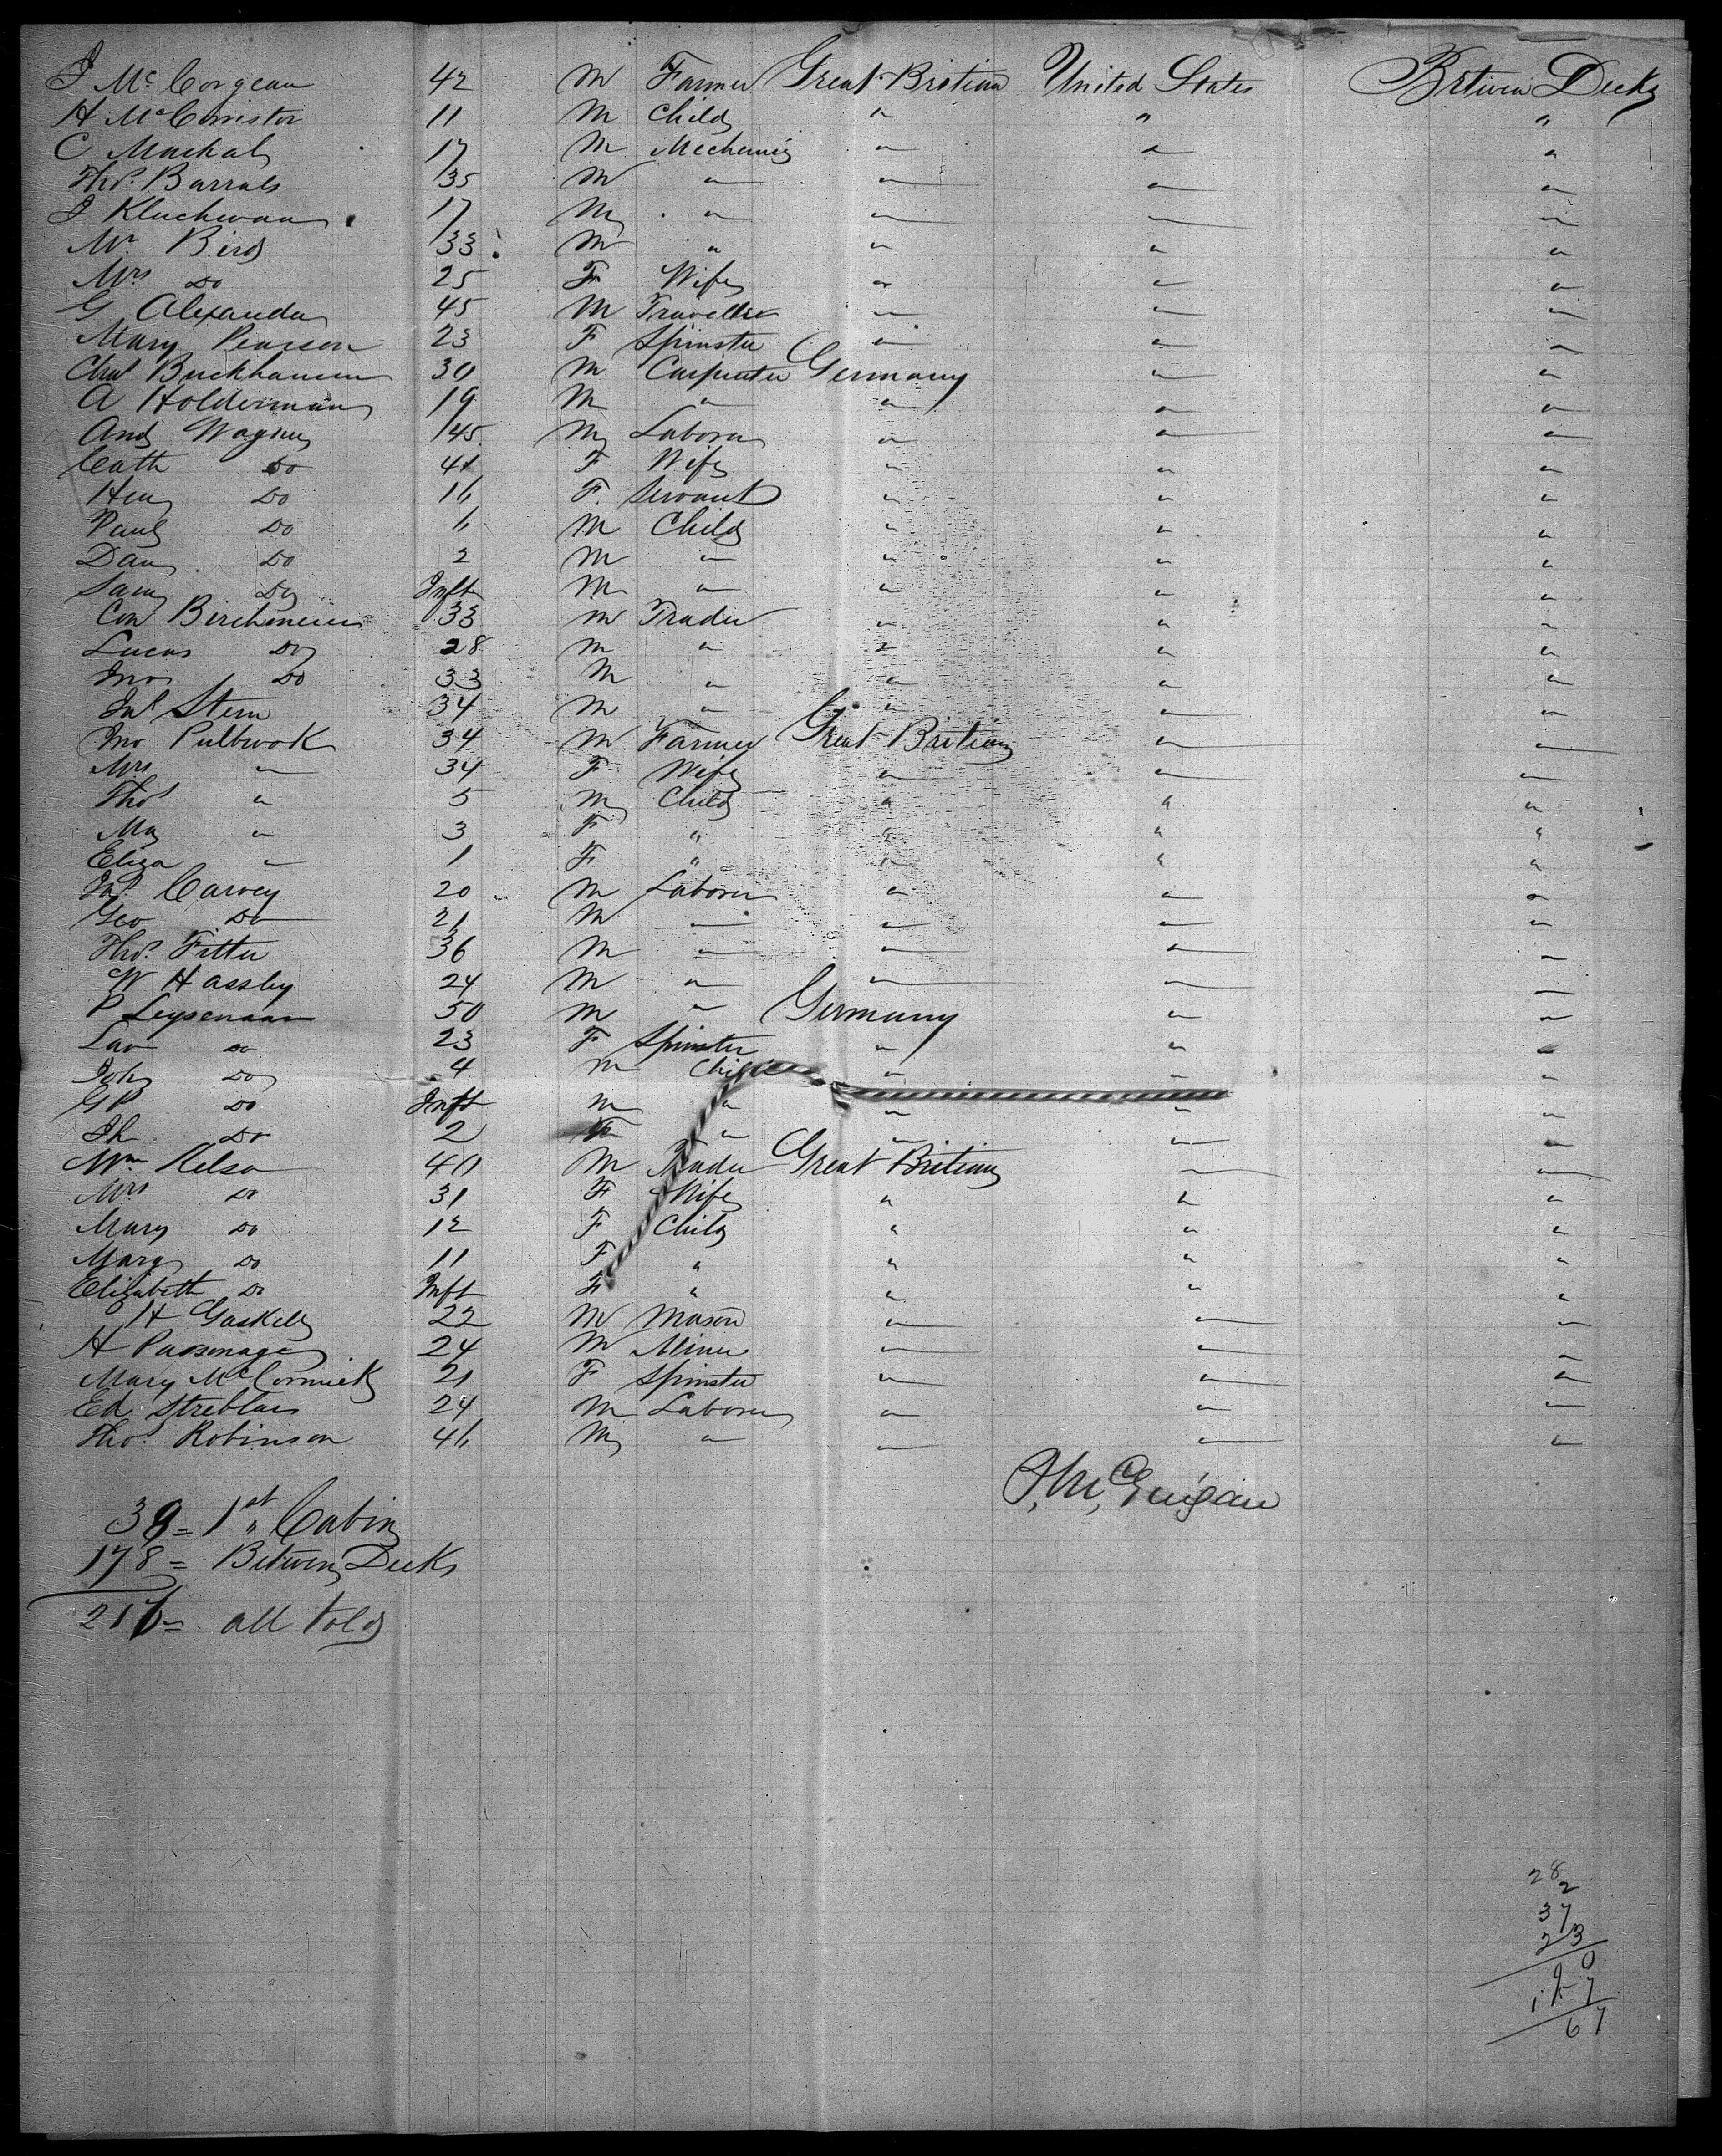 J McCorgean 42 M Farmer Great Britian United States Betwen Decks
H McCorristor 11 M Child " " "
C Mackal 17 M Mechanic " " "
Thos. Barrals 35 M " " " "
J Kluckwan 17 M " " " "
Mr Bird 33 M " " " "
Mrs Do 25 F Wife " " "
G Alexander 45 M Traveller " " "
Mary Pearson 23 F Spinster " " "
Chas Buckhausen 30 M Carpenter Germany " "
A Holderman 19 M " " " "
And Wagner 45 M Laborer " " "
Cath Do 41 F Wife " " "
Hen Do 16 F Servant " " "
Paul Do 6 M Child " " "
Dan Do 2 M " " " "
Sam Do Inft M " " " "
Con Birchmeier 33 M Trader " " "
Lucas Do 28 M " " " "
Jno Do 33 M " " " "
Jas Stern 34 M " " " "
Jno Pulbrook 34 M Farmer Great Britian " "
Mrs " 34 F Wife " " "
Thos " 5 M Child " " "
Ma " 3 F " " " "
Eliza " 1 F " " " "
Jas. Carvey 20 M Laborer " " "
Geo Do 21 M " " " "
Thos. Fitter 36 M " " " "
W Hassley 24 M " " " "
P Leysenaar 50 M " Germany " "
Lav Do 23 F Spinster " " "
Joh Do 4 M Child " " "
GP Do Inft M " " " "
Th Do 2 F " " " "
Wm Kelso 40 M Trader Great Britian " "
Mrs Do 31 F Wife " " "
Mary Do 12 F Child " " "
Marg Do 11 F " " " "
Elizabeth Do Inft F " " " "
H Gaskell 22 M Mason " " "
H Parsonage 24 M Miner " " "
Mary McCormick 21 F Spinster " " "
Ed Streblau 24 M Laborer " " "
Thos. Robinson 46 M " " " "
J. McGuigan
39 = 1st " Cabin
178 = Betwen Decks
217 = all told
28
2
37
23
67